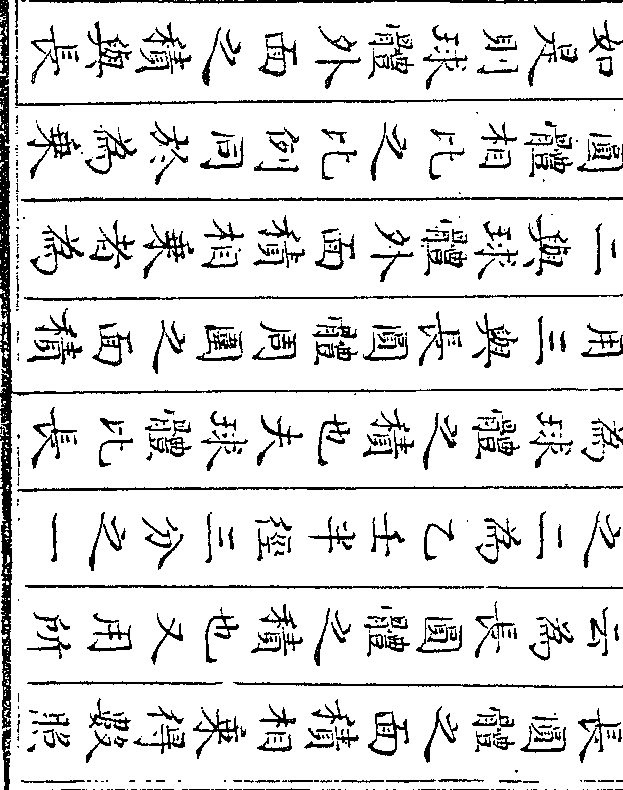 長圓體之面積相乗得數照
云為長圓體之積也又用所
之二為乙壬半經三分之一
為球體之積也夫球體比長
用三與長圓體周圍之面積
二與球體外面積相乗者為
圓體相比之比例同於為乗
如是則球體外面之積與長